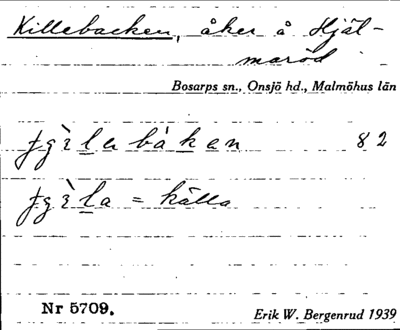 Killebacken, åker å Hjäl-
maröd
Bosarps sn., Onsjö hd., Malmöhus län
82
= källa
Nr 5709.
Erik W. Bergenrud 1939